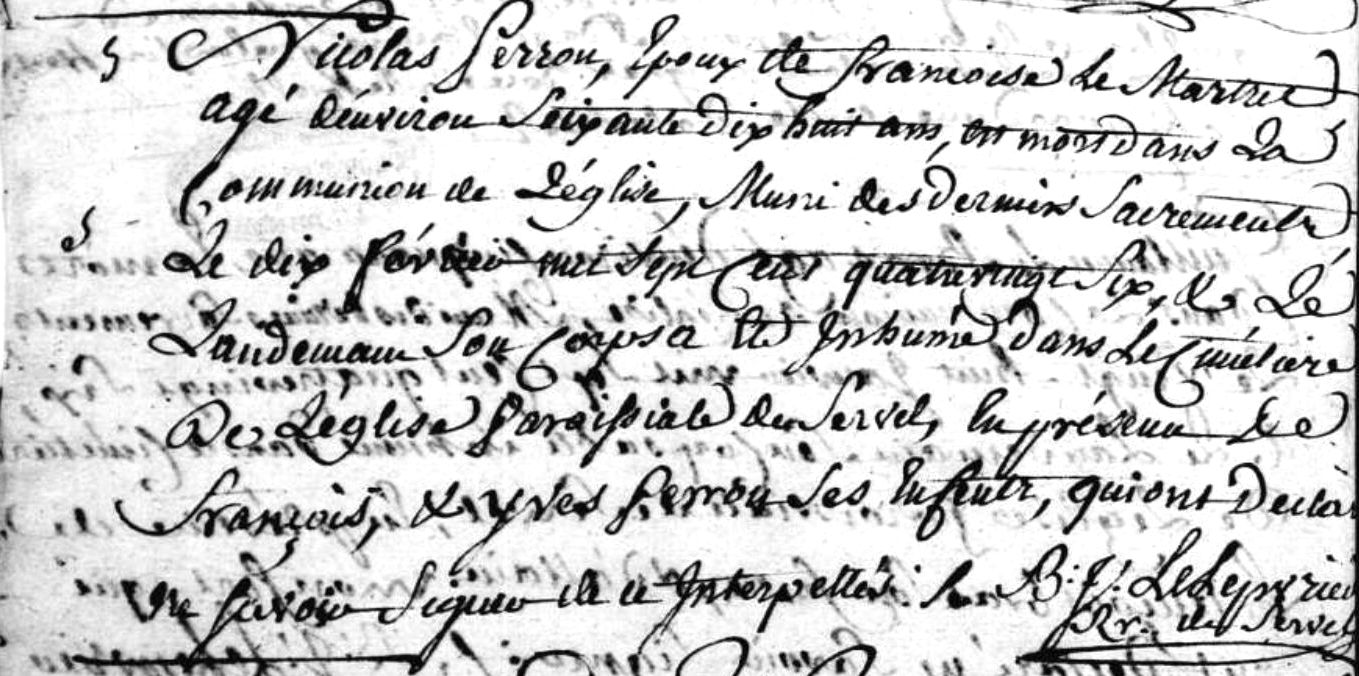 Nicolas Perrou, Epoux de francoise Le Martret
agé d'environ Soixante dix huit ans, est mort dans La
Communion de L'église, Muni des derniers Sacrements
Le dix février mil Sept Cent quatrevingt Six, & Le
Landemain Son Corps a été Inhumé dans Le Cimétiere
De L'église Paroissiale de Servel, En présence de
François, & yves Perrou Ses Enfents, qui ont Déclaré
Ne savoir Signer de ce Interpellés. B. J.
Rr. de Servel